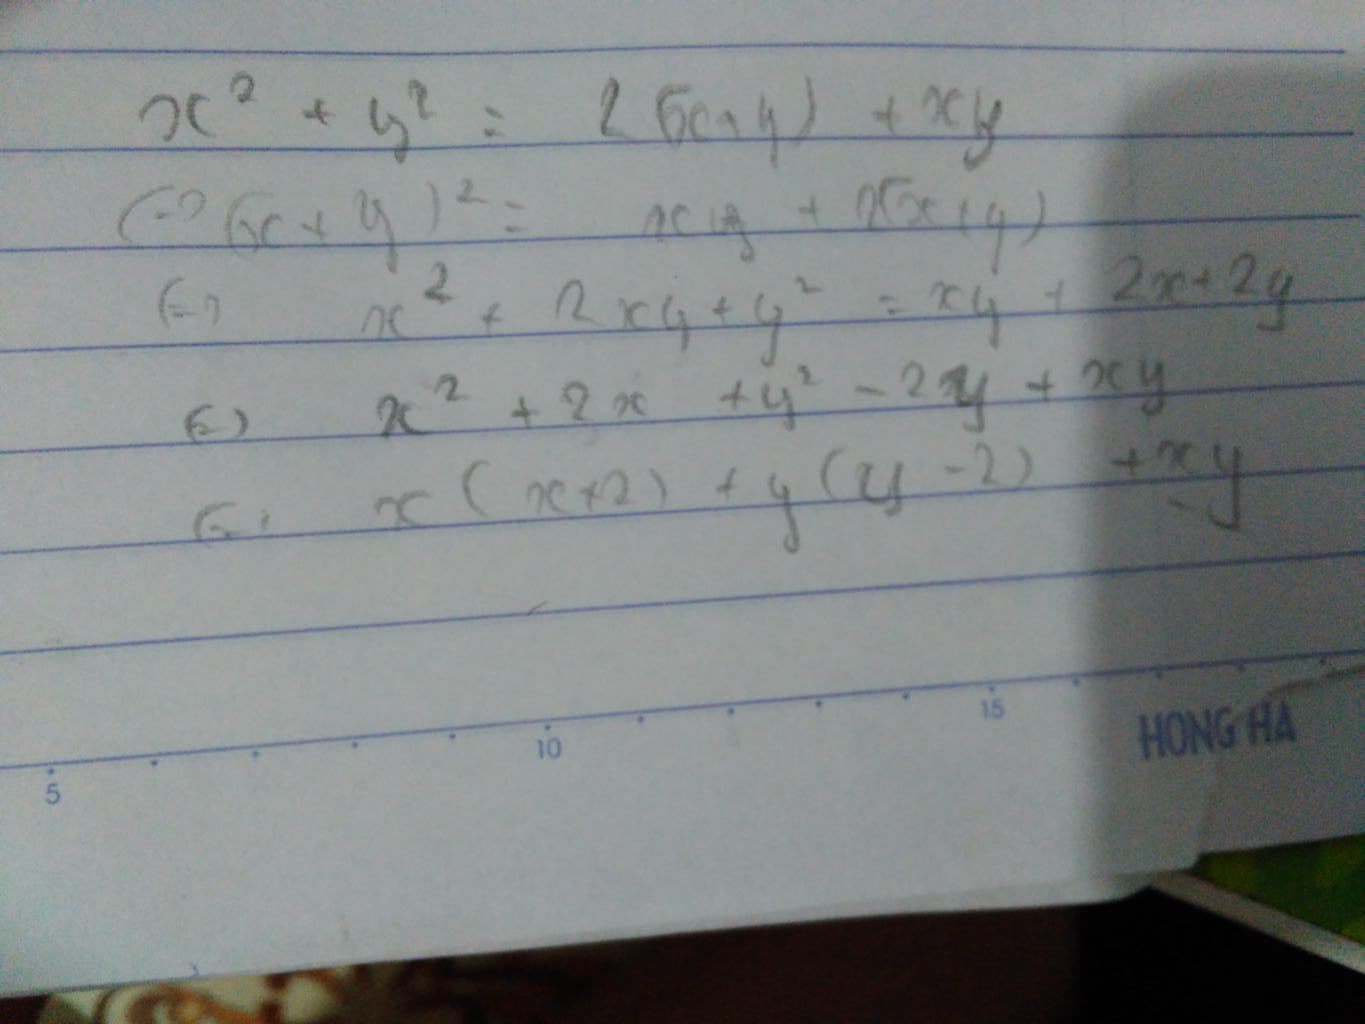 x² + y² = 2(x+y) + xy
(=) (x+y)² = xy + 2(x+y)
(=) x² + 2xy + y² = xy + 2x + 2y
(=) x² + 2x + y² - 2y + xy
(=) x(x+2) + y(y-2) + xy
5 10 15 HONG HA